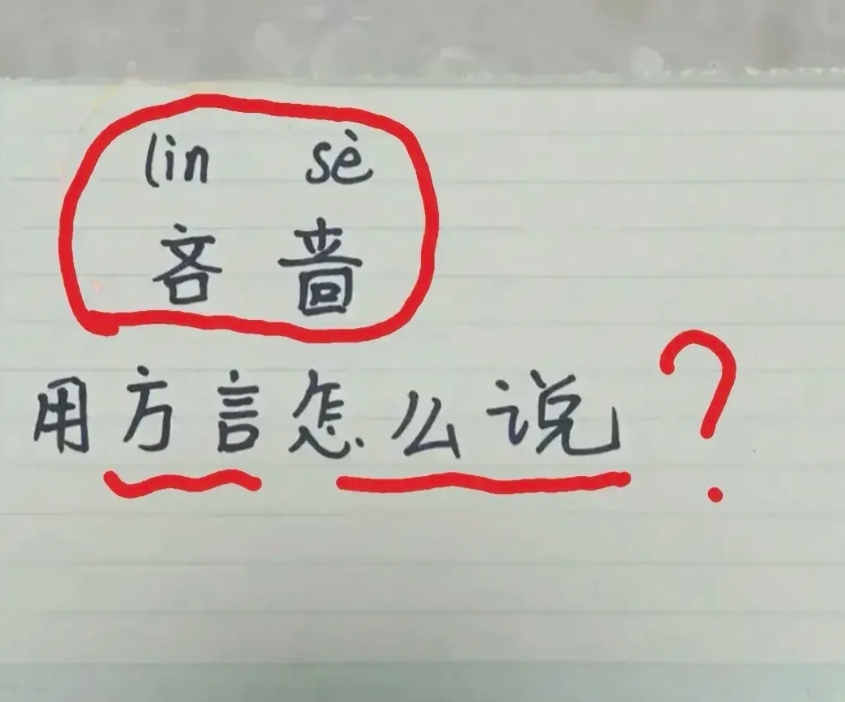 lin sè
吝啬
用方言怎么说?